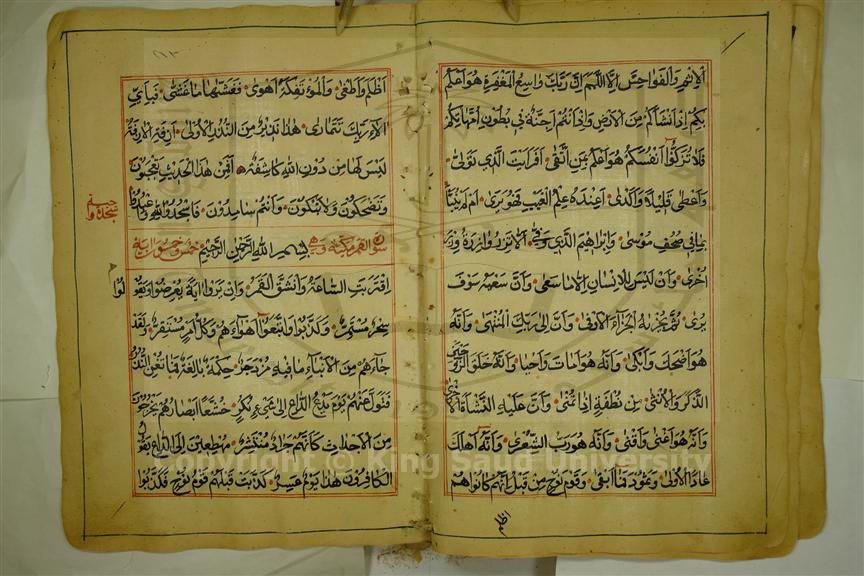 الاثم والفواحش الا اللمم ان ربك واسع المغفرة هو اعلم
بكم اذ انشاكم من الارض واذ انتم اجنة في بطون امهاتكم
فلا تزكوا انفسكم هو اعلم بمن اتقى افرايت الذي تولى
واعطى قليلا واكدى اعنده علم الغيب فهو يرى ام لم ينبأ
بما في صحف موسى وابراهيم الذي وفى الا تزر وازرة وزر
اخرى وان ليس للانسان الا ما سعى وان سعيه سوف
يرى ثم يجزيه الجزاء الاوفى وان الى ربك المنتهى وانه
هو اضحك وابكى وانه هو امات واحيا وانه خلق الزوجين
الذكر والانثى من نطفة اذا تمنى وان عليه النشأة الاخرى
وانه هو اغنى واقنى وانه هو رب الشعرى وانه اهلك
عادا الاولى وثمود فما ابقى وقوم نوح من قبل انهم كانوا هم
اظلم
اظلم واطغى والمؤتفكة اهوى فغشيها ما غشى فباي
الاء ربك تتمارى هذا نذير من النذر الاولى ازفة الازفة
ليس لها من دون الله كاشفة افمن هذا الحديث تعجبون
وتضحكون ولا تبكون وانتم سامدون فاسجدوا لله واعبدوا
سورة القمر مكية وهي بسم الله الرحمن الرحيم خمس وخمسون اية
اقتربت الساعة وانشق القمر وان يروا اية يعرضوا ويقولوا
سحر مستمر وكذبوا واتبعوا اهواءهم وكل امر مستقر ولقد
جاءهم من الانباء ما فيه مزدجر حكمة بالغة فما تغن النذر
فتول عنهم يوم يدع الداع الى شيء نكر خشعا ابصارهم يخرجون
من الاجداث كانهم جراد منتشر مهطعين الى الداع يقول
الكافرون هذا يوم عسر كذبت قبلهم قوم نوح فكذبوا